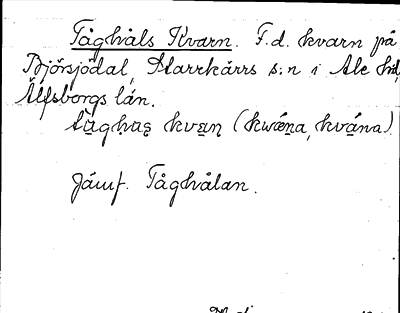 Tåghåls Kvarn. F.d. kvarn på
Björsjödal, Starrkärrs s:n i Ale hd,
Älfsborgs län.
kvan (kwǽna, kvána)
Jämf. Tåghålan.